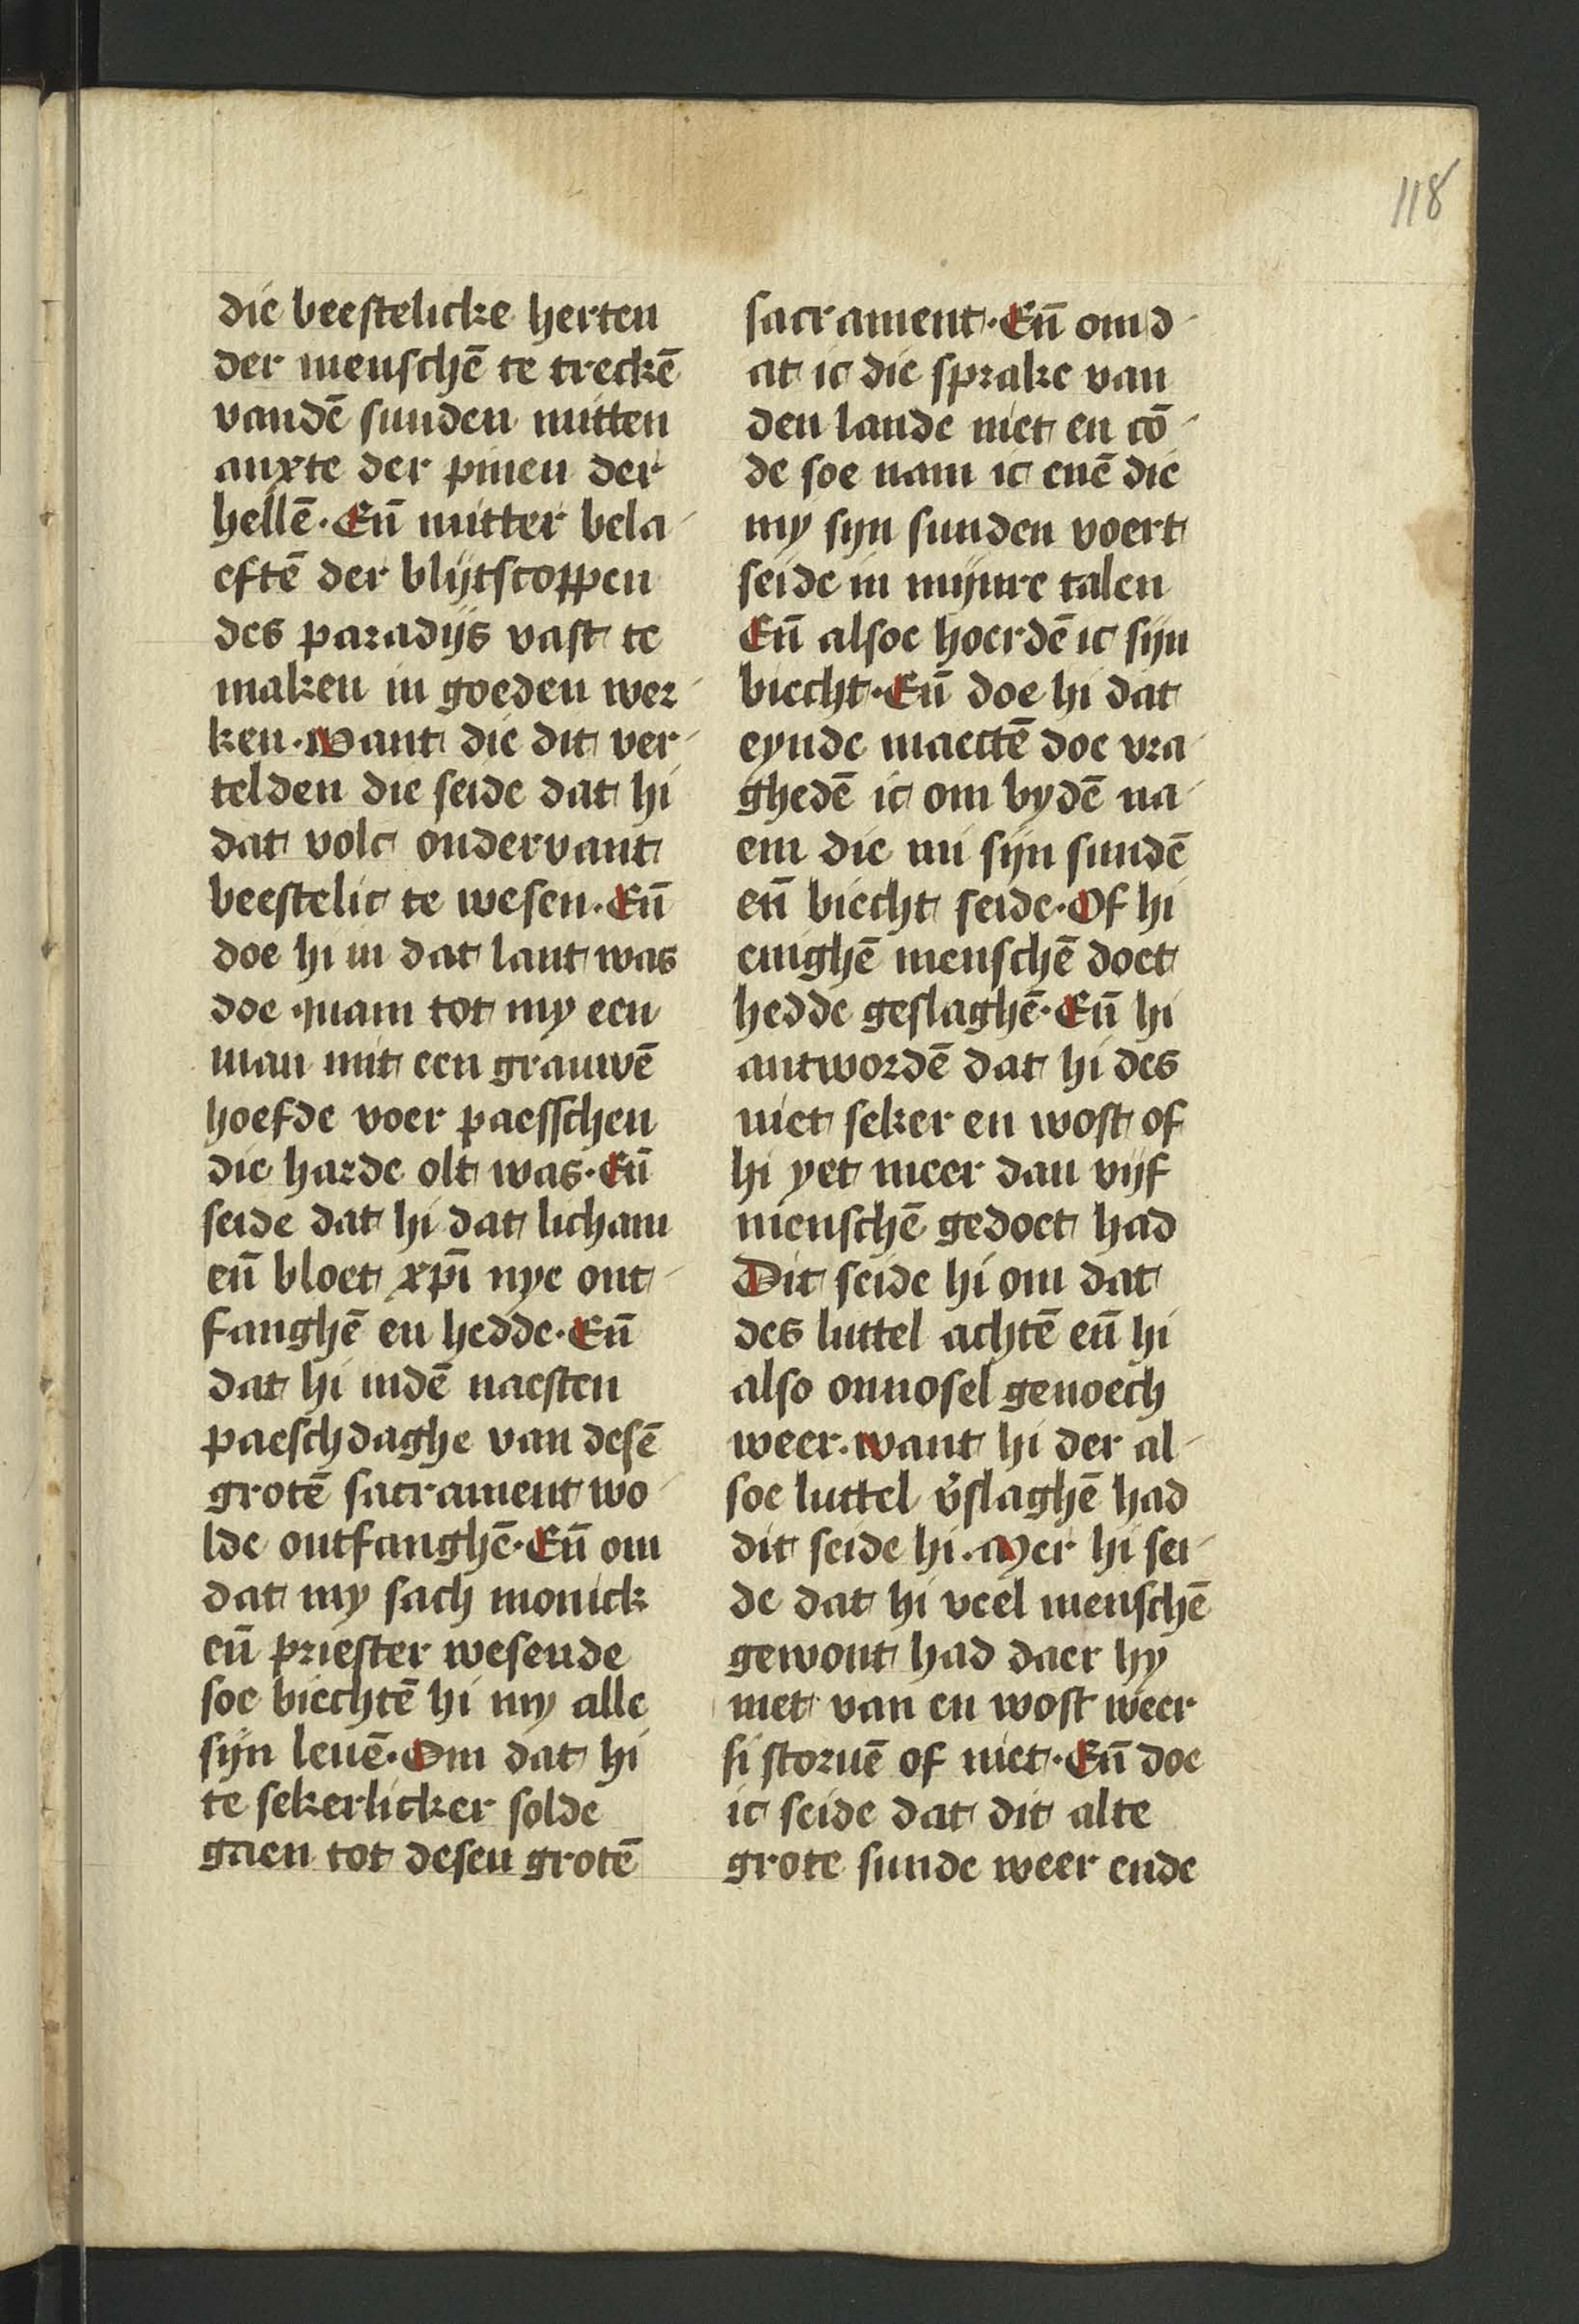 118
die beestelicke herten
der menschē te treckē
vandē sunden mitten
anxte der pinen der
hellē. Eñ mitter bela-
eftē der blijtscoppen
des paradijs vast te
maken in goeden wer-
ken. Want die dit ver-
telden die seide dat hi
dat volc ondervant
beestelic te wesen. Eñ
doe hi in dat lant was
doe quam tot my een
man mit een grauwē
hoefde voer paesschen
die harde olt was. Eñ
seide dat hi dat licham
eñ bloet xp̄i nye ont-
fanghē en hedde. Eñ
dat hi indē naesten
paeschdaghe van desē
grotē sacrament wo-
lde ontfanghē. Eñ om
dat my sach monick
eñ priester wesende
soe biechtē hi my alle
sijn leuē. Om dat hi
te sekerlicker solde
gaen tot desen grotē
sacrament. Eñ om d-
at ic die sprake van
den lande niet en cō-
de soe nam ic enē die
my sijn sunden voert
seide in mijnre talen
Eñ alsoe hoerdē ic sijn
biecht. Eñ doe hi dat
eynde maectē doe vra-
ghedē ic om bydē na-
em die mi sijn sundē
eñ biecht seide. Of hi
enighē menschē doet
hedde geslaghē. Eñ hi
antwordē dat hi des
niet seker en wost of
hi yet meer dan vijf
menschē gedoet had
Dit seide hi om dat
des luttel achtē eñ hi
also onnosel genoech
weer. want hi der al-
soe luttel v̄slaghē had
dit seide hi. Mer hi sei-
de dat hi veel menschē
gewont had daer hy
niet van en wost weer
si storuē of niet. Eñ doe
ic seide dat dit alte
grote sunde weer ende